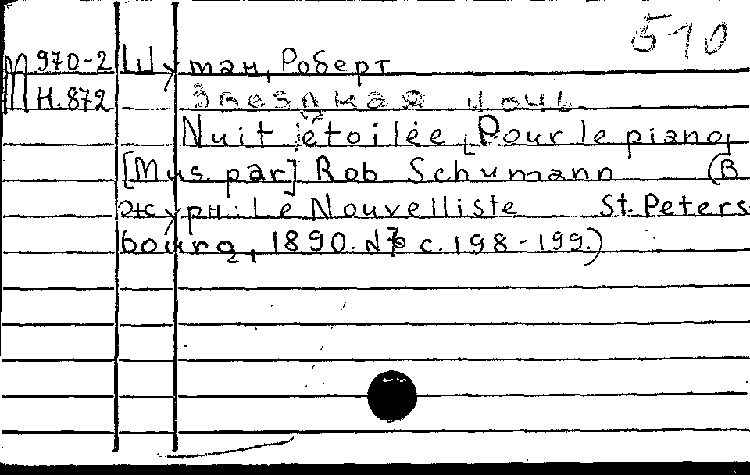 510
М 970-2 Шуман, Роберт
Н.872 Звездная ночь.
Nuit étoilée [Pour le piano]
[Mus. par] Rob Schumann (В
журн: Le Nouvelliste St. Peters
bourg, 1890. №7 с. 198-199.)